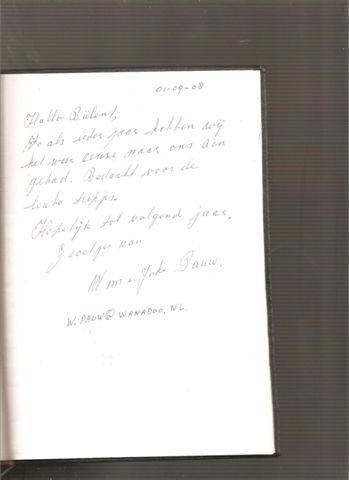 01-09-08
Hallo Bülent,
Zo als ieder jaar hebben wij
het weer eens naar ons
gehad. Bedankt voor de
leuke tripjes.
Hopelijk tot volgend jaar.
Groetjes van
Wim en Joke Pauw.
W.PAUW@WANADOO.NL.